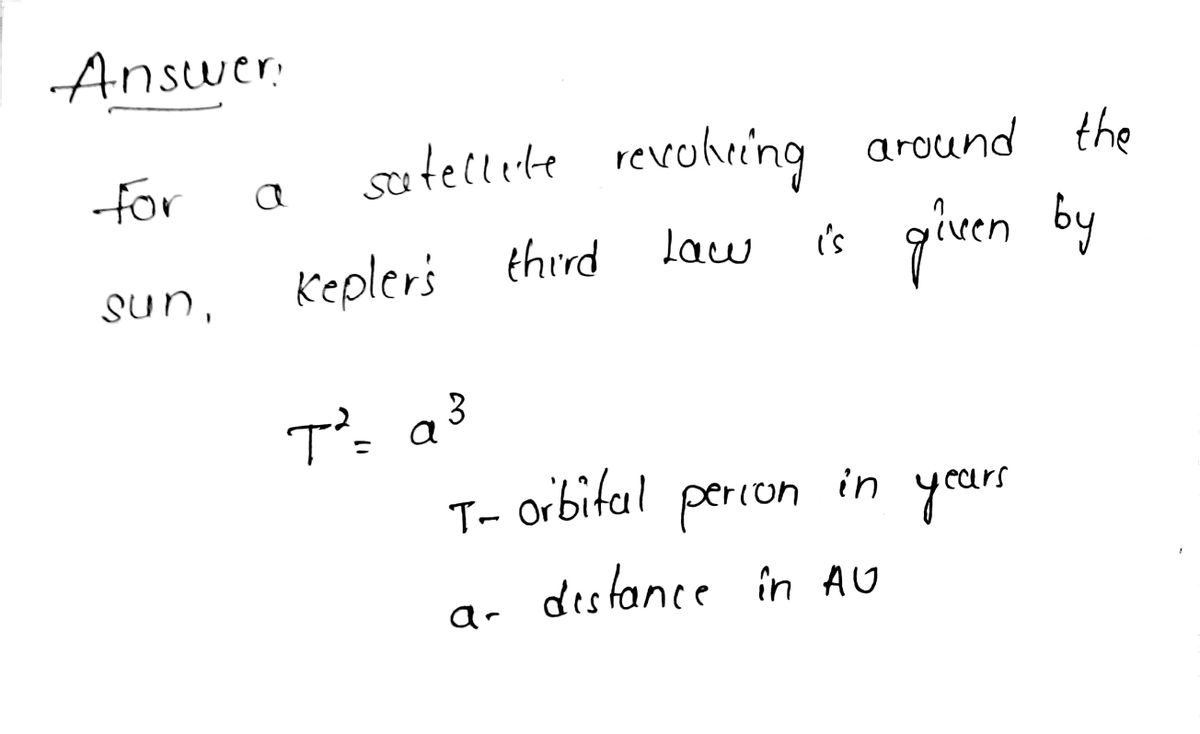 Answer:
for a satellite revolving around the
sun, Kepler's third Law is given by
T² = a³
T- orbital perion in years
a- distance in AU